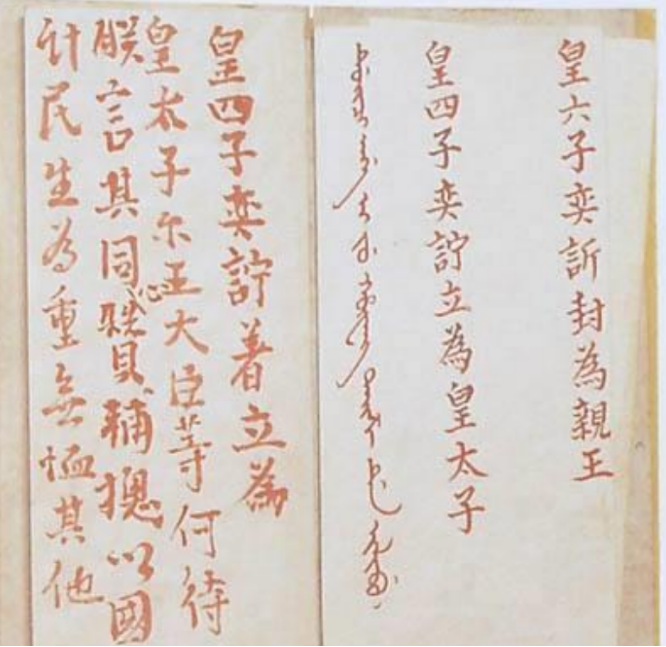 皇六子奕訢封為親王
皇四子奕詝立為皇太子
皇四子奕詝着立為
皇太子尔王大臣等何待
朕言其同心贊輔捴以國
計民生為重無恤其他